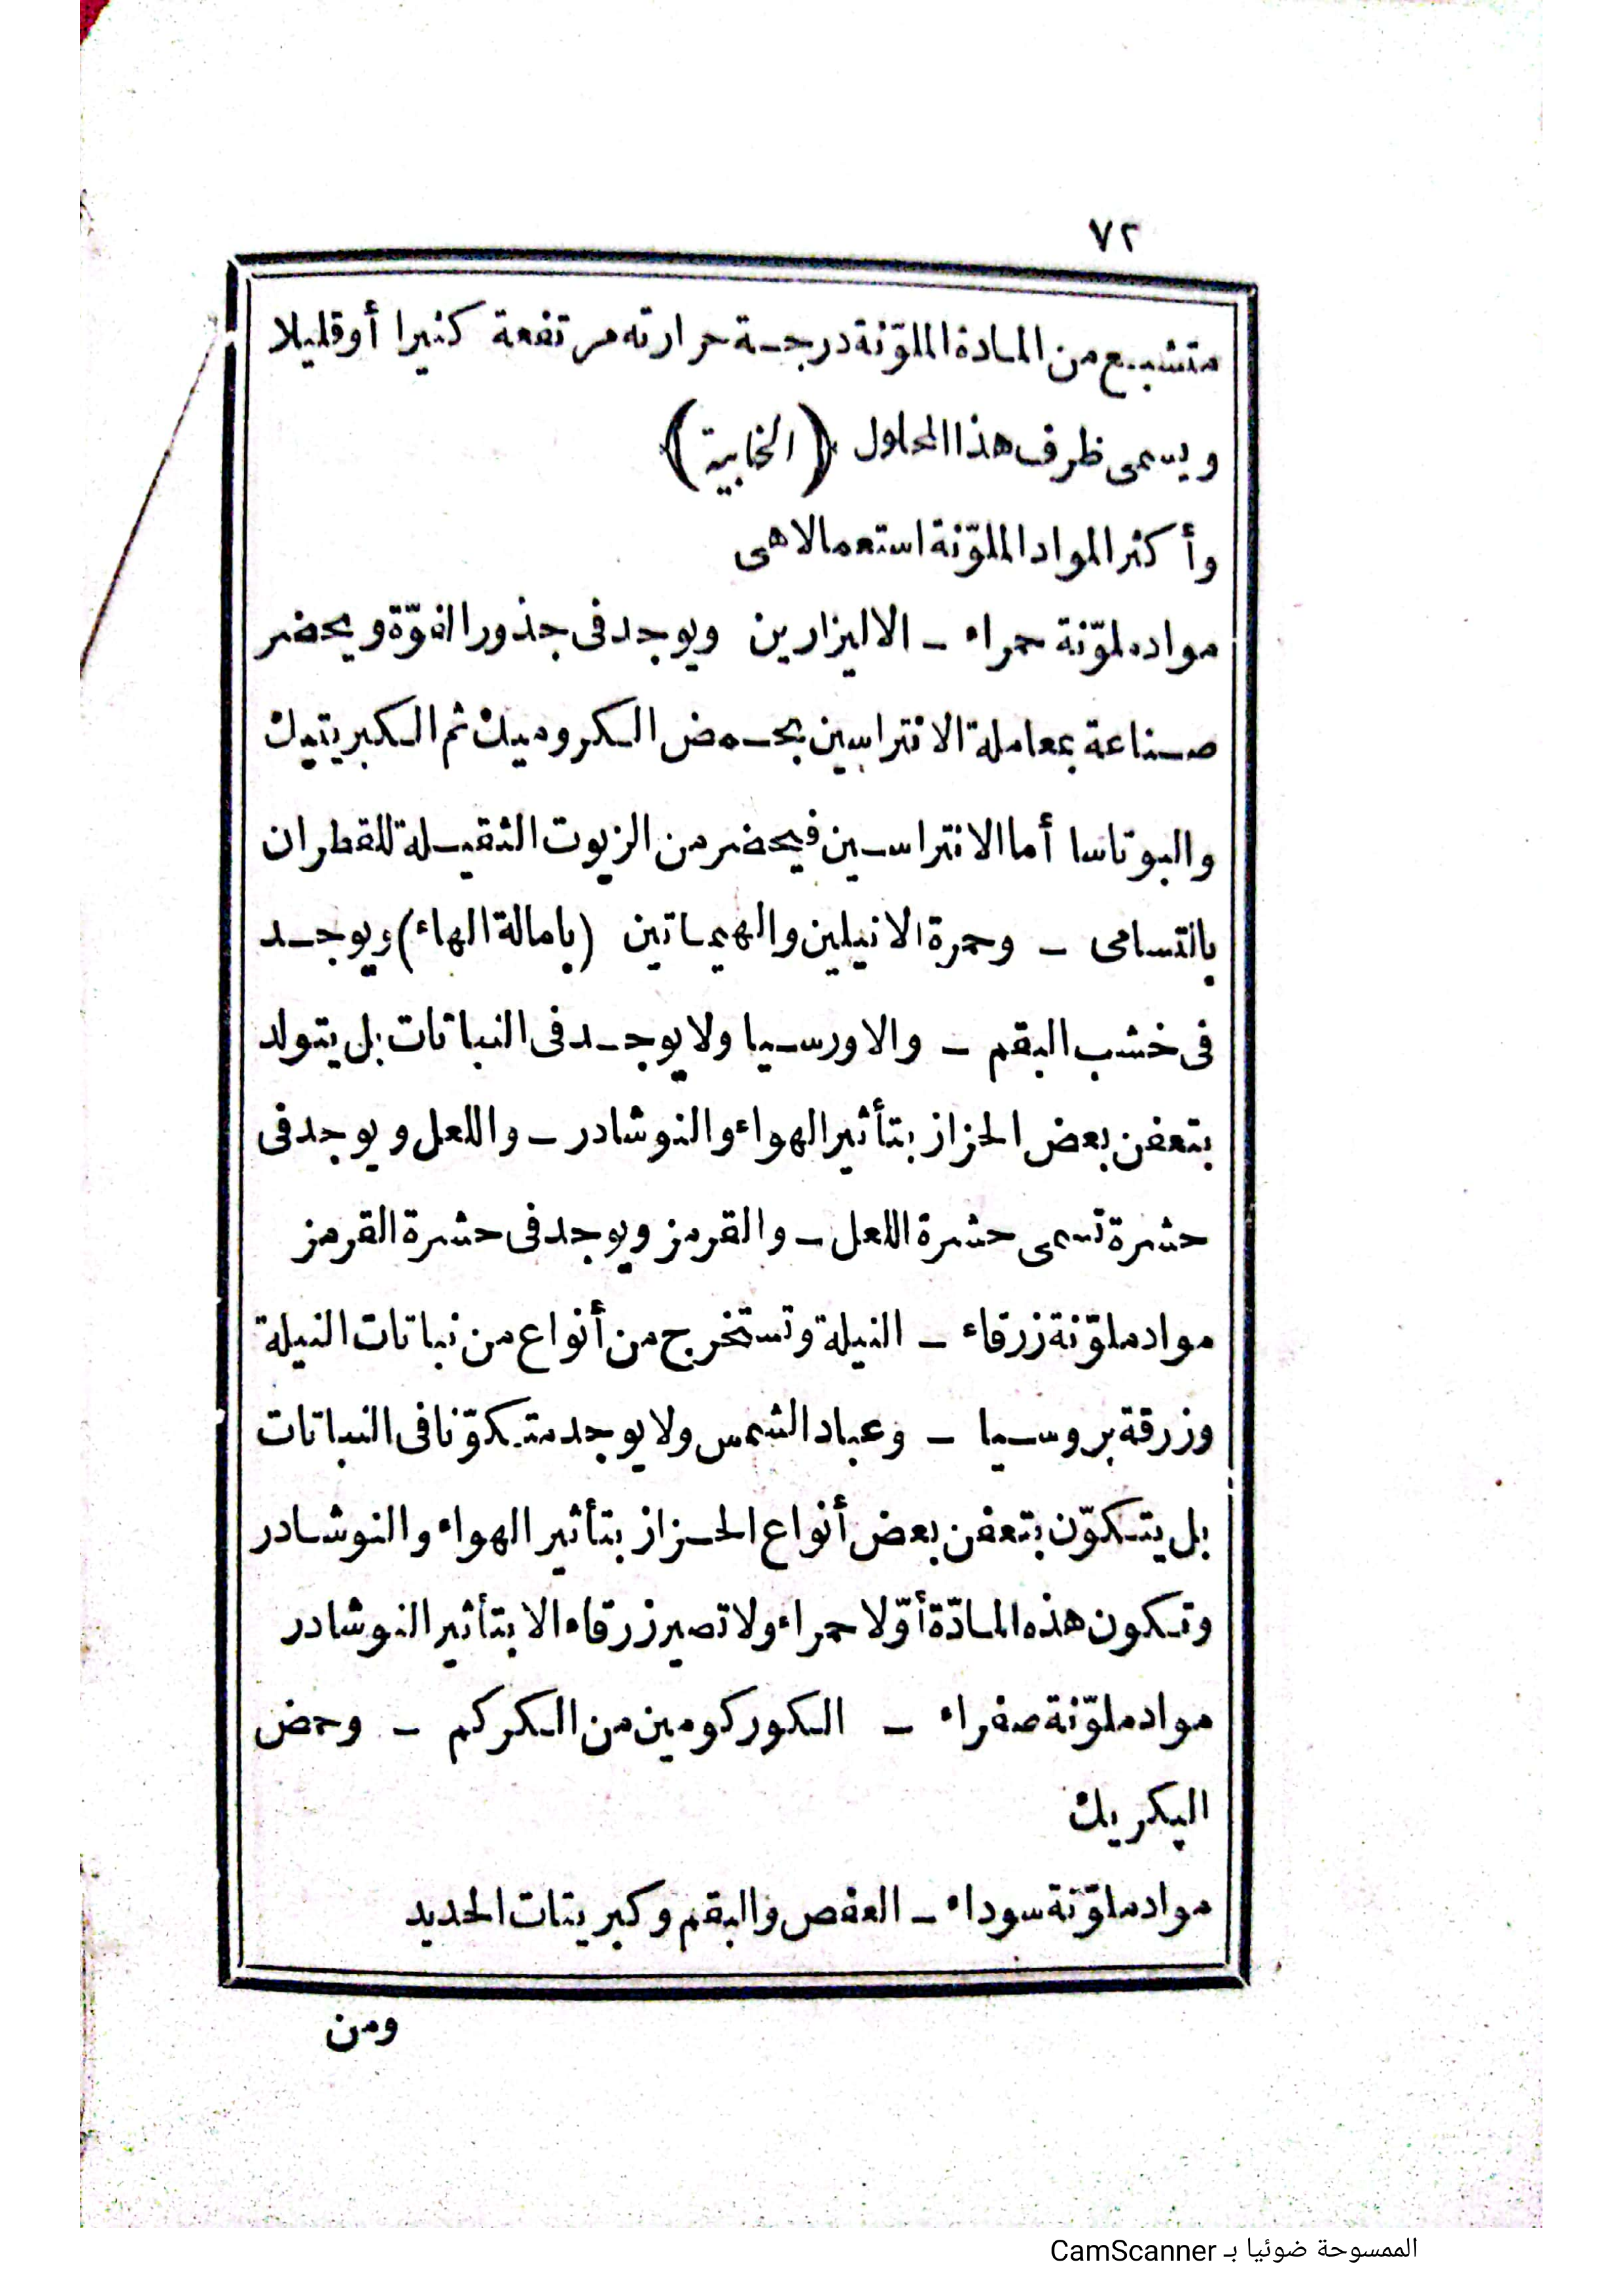 ٧٢
متشبع من المادة الملوّنة درجة حرارته مرتفعة كثيرا أو قليلا
ويسمى ظرف هذا المحلول (الخابية)
وأكثر المواد الملوّنة استعمالا هى
مواد ملوّنة حمراء ـ الاليزارين ويوجد فى جذور الفوّة ويحضر
صناعة بمعاملة الانتراسين بحمض الكروميك ثم الكبريتيك
والبوتاسا أما الانتراسين فيحضر من الزيوت الثقيلة للقطران
بالتسامى ـ وحمرة الانيلين والهيماتين (بامالة الهاء) ويوجد
فى خشب البقم ـ والاورسيا ولا يوجد فى النباتات بل يتولد
بتعفن بعض الحزاز بتأثير الهواء والنوشادر ـ واللعل ويوجد فى
حشرة تسمى حشرة اللعل ـ والقرمز ويوجد فى حشرة القرمز
مواد ملوّنة زرقاء ـ النيلة وتستخرج من أنواع من نباتات النيلة
وزرقة بروسيا ـ وعباد الشمس ولا يوجد متكوّنا فى النباتات
بل يتكوّن بتعفن بعض أنواع الحزاز بتأثير الهواء والنوشادر
وتكون هذه المادّة أوّلا حمراء ولا تصير زرقاء الا بتأثير النوشادر
مواد ملوّنة صفراء ـ الكوركومين من الكركم ـ وحمض
البكريك
مواد ملوّنة سوداء ـ العفص والبقم وكبريتات الحديد
ومن
الممسوحة ضوئيا بـ CamScanner